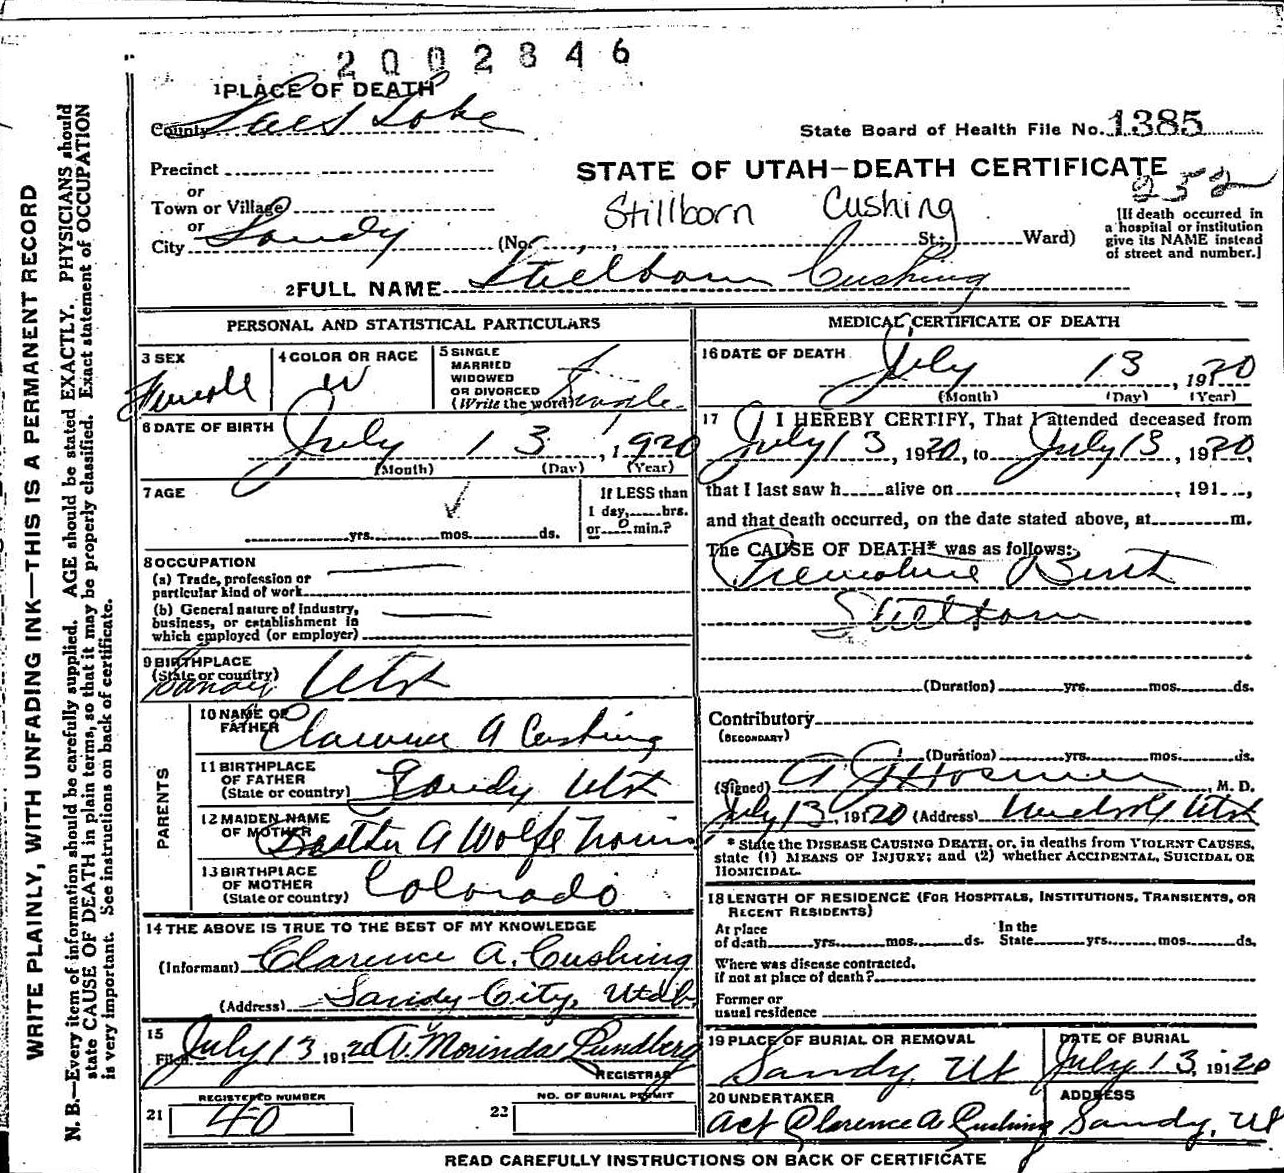 2002846
1 PLACE OF DEATH
County Salt Lake
State Board of Health File No. 1385
STATE OF UTAH—DEATH CERTIFICATE
252
Precinct
or
Town or Village
or
City Sandy (No. , , St.; Ward)
Stillborn Cushing
[If death occurred in
a hospital or institution
give its NAME instead
of street and number.]
2 FULL NAME Stillborn Cushing
PERSONAL AND STATISTICAL PARTICULARS
3 SEX
Female
4 COLOR OR RACE
W
5 SINGLE
MARRIED
WIDOWED
OR DIVORCED
(Write the word) Single
6 DATE OF BIRTH
July 13, 1920
(Month) (Day) (Year)
7 AGE
yrs. mos. ds.
If LESS than
1 day, hrs.
or 0 min.?
8 OCCUPATION
(a) Trade, profession or
particular kind of work
(b) General nature of industry,
business, or establishment in
which employed (or employer)
9 BIRTHPLACE
(State or country)
Sandy Utah
PARENTS
10 NAME OF
FATHER Clarence A Cushing
11 BIRTHPLACE
OF FATHER
(State or country) Sandy Utah
12 MAIDEN NAME
OF MOTHER A Wolfe
13 BIRTHPLACE
OF MOTHER
(State or country) Colorado
14 THE ABOVE IS TRUE TO THE BEST OF MY KNOWLEDGE
(Informant) Clarence A. Cushing
(Address) Sandy City, Utah
15
Filed July 13 191 20 A. Morinda Lundberg
REGISTRAR
REGISTERED NUMBER
21 40
NO. OF BURIAL PERMIT
22
MEDICAL CERTIFICATE OF DEATH
16 DATE OF DEATH
July 13, 1920
(Month) (Day) (Year)
17 I HEREBY CERTIFY, That I attended deceased from
July 13, 1920, to July 13, 1920,
that I last saw h alive on , 191 ,
and that death occurred, on the date stated above, at m.
The CAUSE OF DEATH* was as follows:
Premature Birth
Stillborn
(Duration) yrs. mos. ds.
Contributory
(SECONDARY)
(Duration) yrs. mos. ds.
(Signed) A J Hosmer, M. D.
July 13, 191 20 (Address) Utah
* State the DISEASE CAUSING DEATH, or, in deaths from VIOLENT CAUSES,
state (1) MEANS OF INJURY; and (2) whether ACCIDENTAL, SUICIDAL OR
HOMICIDAL.
18 LENGTH OF RESIDENCE (FOR HOSPITALS, INSTITUTIONS, TRANSIENTS, OR
RECENT RESIDENTS)
At place
of death yrs. mos. ds.
In the
State yrs. mos. ds.
Where was disease contracted,
if not at place of death?
Former or
usual residence
19 PLACE OF BURIAL OR REMOVAL
Sandy, Ut
DATE OF BURIAL
July 13, 191 20
20 UNDERTAKER
Act Clarence A. Cushing
ADDRESS
Sandy, Ut
READ CAREFULLY INSTRUCTIONS ON BACK OF CERTIFICATE
WRITE PLAINLY, WITH UNFADING INK—THIS IS A PERMANENT RECORD
N. B.—Every item of information should be carefully supplied. AGE should be stated EXACTLY. PHYSICIANS should
state CAUSE OF DEATH in plain terms, so that it may be properly classified. Exact statement of OCCUPATION
is very important. See instructions on back of certificate.